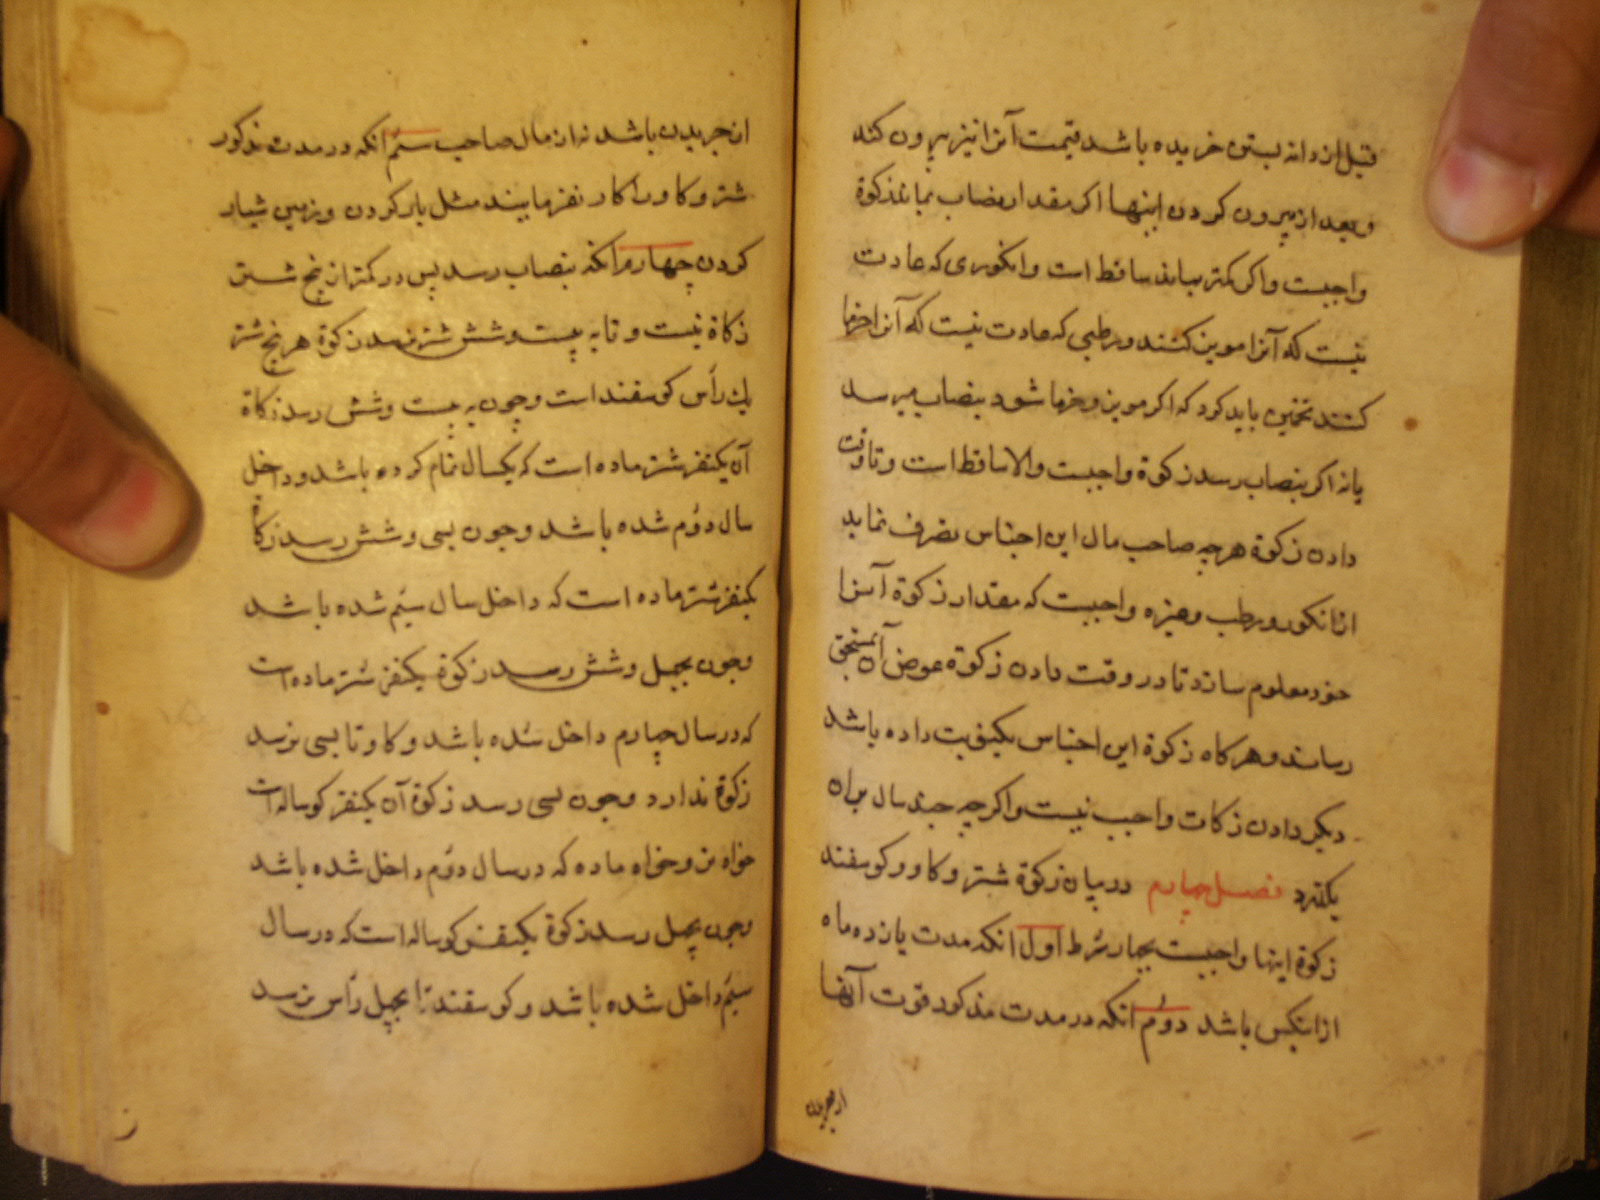 قبل از دانه بستن خریده باشد قیمت آنرا نیز بیرون کند
و بعد از بیرون کردن اینها اکر مقدار نصاب بماند زکوة
واجبست و اکر کمتر بماند ساقط است و انکوری که عادت
نیست که آنرا مویز کنند و رطبی که عادت نیست که آنرا خرما
کنند تخمین باید کرد که اکر مویز و خرما شود بنصاب میرسد
یا نه اکر بنصاب رسد زکوة واجبست و الا ساقط است و تا وقت
دادن زکوة هرچه صاحب مال این اجناس تصرف نماید
از انکور و رطب و غیره واجبست که مقدار زکوة آنرا
خود معلوم سازد تا در وقت دادن زکوة عوض آن بمستحق
رساند و هرکاه زکوة این اجناس یکنوبت داده باشد
دیکر دادن زکات واجب نیست و اکرچه چند سال بران
بکذرد فصل چهارم در بیان زکوة شتر و کاو و کوسفند
زکوة اینها واجبست بچهار شرط اول انکه مدت یازده ماه
از اینکس باشد دوم انکه در مدت مذکور قوت آنها
از چریدن
از چریدن باشد نه از مال صاحب سیم انکه در مدت مذکور
شتر و کاو را کار نفرمایند مثل بار کردن و زمین شیار
کردن چهارم انکه بنصاب رسد پس در کمتر از پنج شتر
زکاة نیست و تا به بیست و شش شتر نرسد زکوة هر پنج شتر
یك رأس کوسفند است و چون به بیست و شش رسد زکاة
آن یکنفر شتر ماده است که یکسال تمام کرده باشد و داخل
سال دوم شده باشد و چون بسی و شش رسد زکاة
یکنفر شتر ماده است که داخل سال سیم شده باشد
و چون بچهل و شش رسد زکوة یکنفر شتر ماده است
که در سال چهارم داخل شده باشد و کاو تا بسی نرسد
زکوة ندارد و چون بسی رسد زکوة آن یکنفر کوساله است
خواه نر و خواه ماده که در سال دوم داخل شده باشد
و چون بچهل رسد زکوة یکنفر کوساله است که در سال
سیم داخل شده باشد و کوسفند تا بچهل رأس نرسد
ز